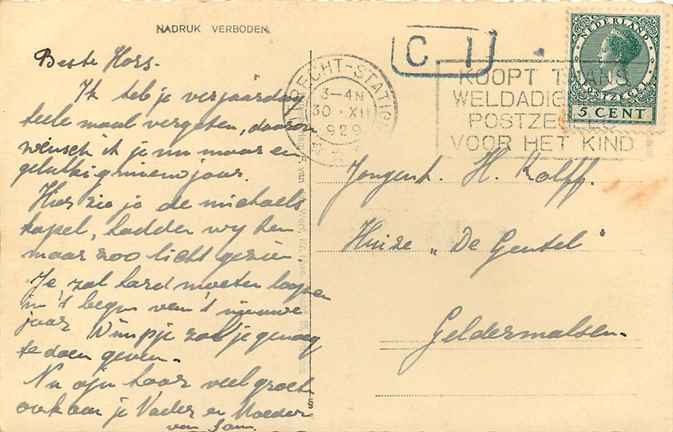 NADRUK VERBODEN
Beste Hors.
Ik heb je verjaardag
heele maal vergeten, daarom
wensch ik je nu maar een
gelukkig nieuwjaar.
Hier zie je de michaels
kapel, hadden wij hem
maar zoo licht gezien
Je zal hard moeten loopen
in 't begin van 't nieuwe
jaar. Wimpje zal je genoeg
te doen geven.
Nu ajn hoor veel groet
ook aan je Vader en Moeder
van
UTRECHT-STATION
3-4N
30 XII
1929
C. I
KOOPT THANS
WELDADIGHEIDS
POSTZEGELS
VOOR HET KIND
NEDERLAND
POSTZEGEL
5 CENT
Jongeh. H. Kolff.
Huize „De Gentel"
Geldermalsen.